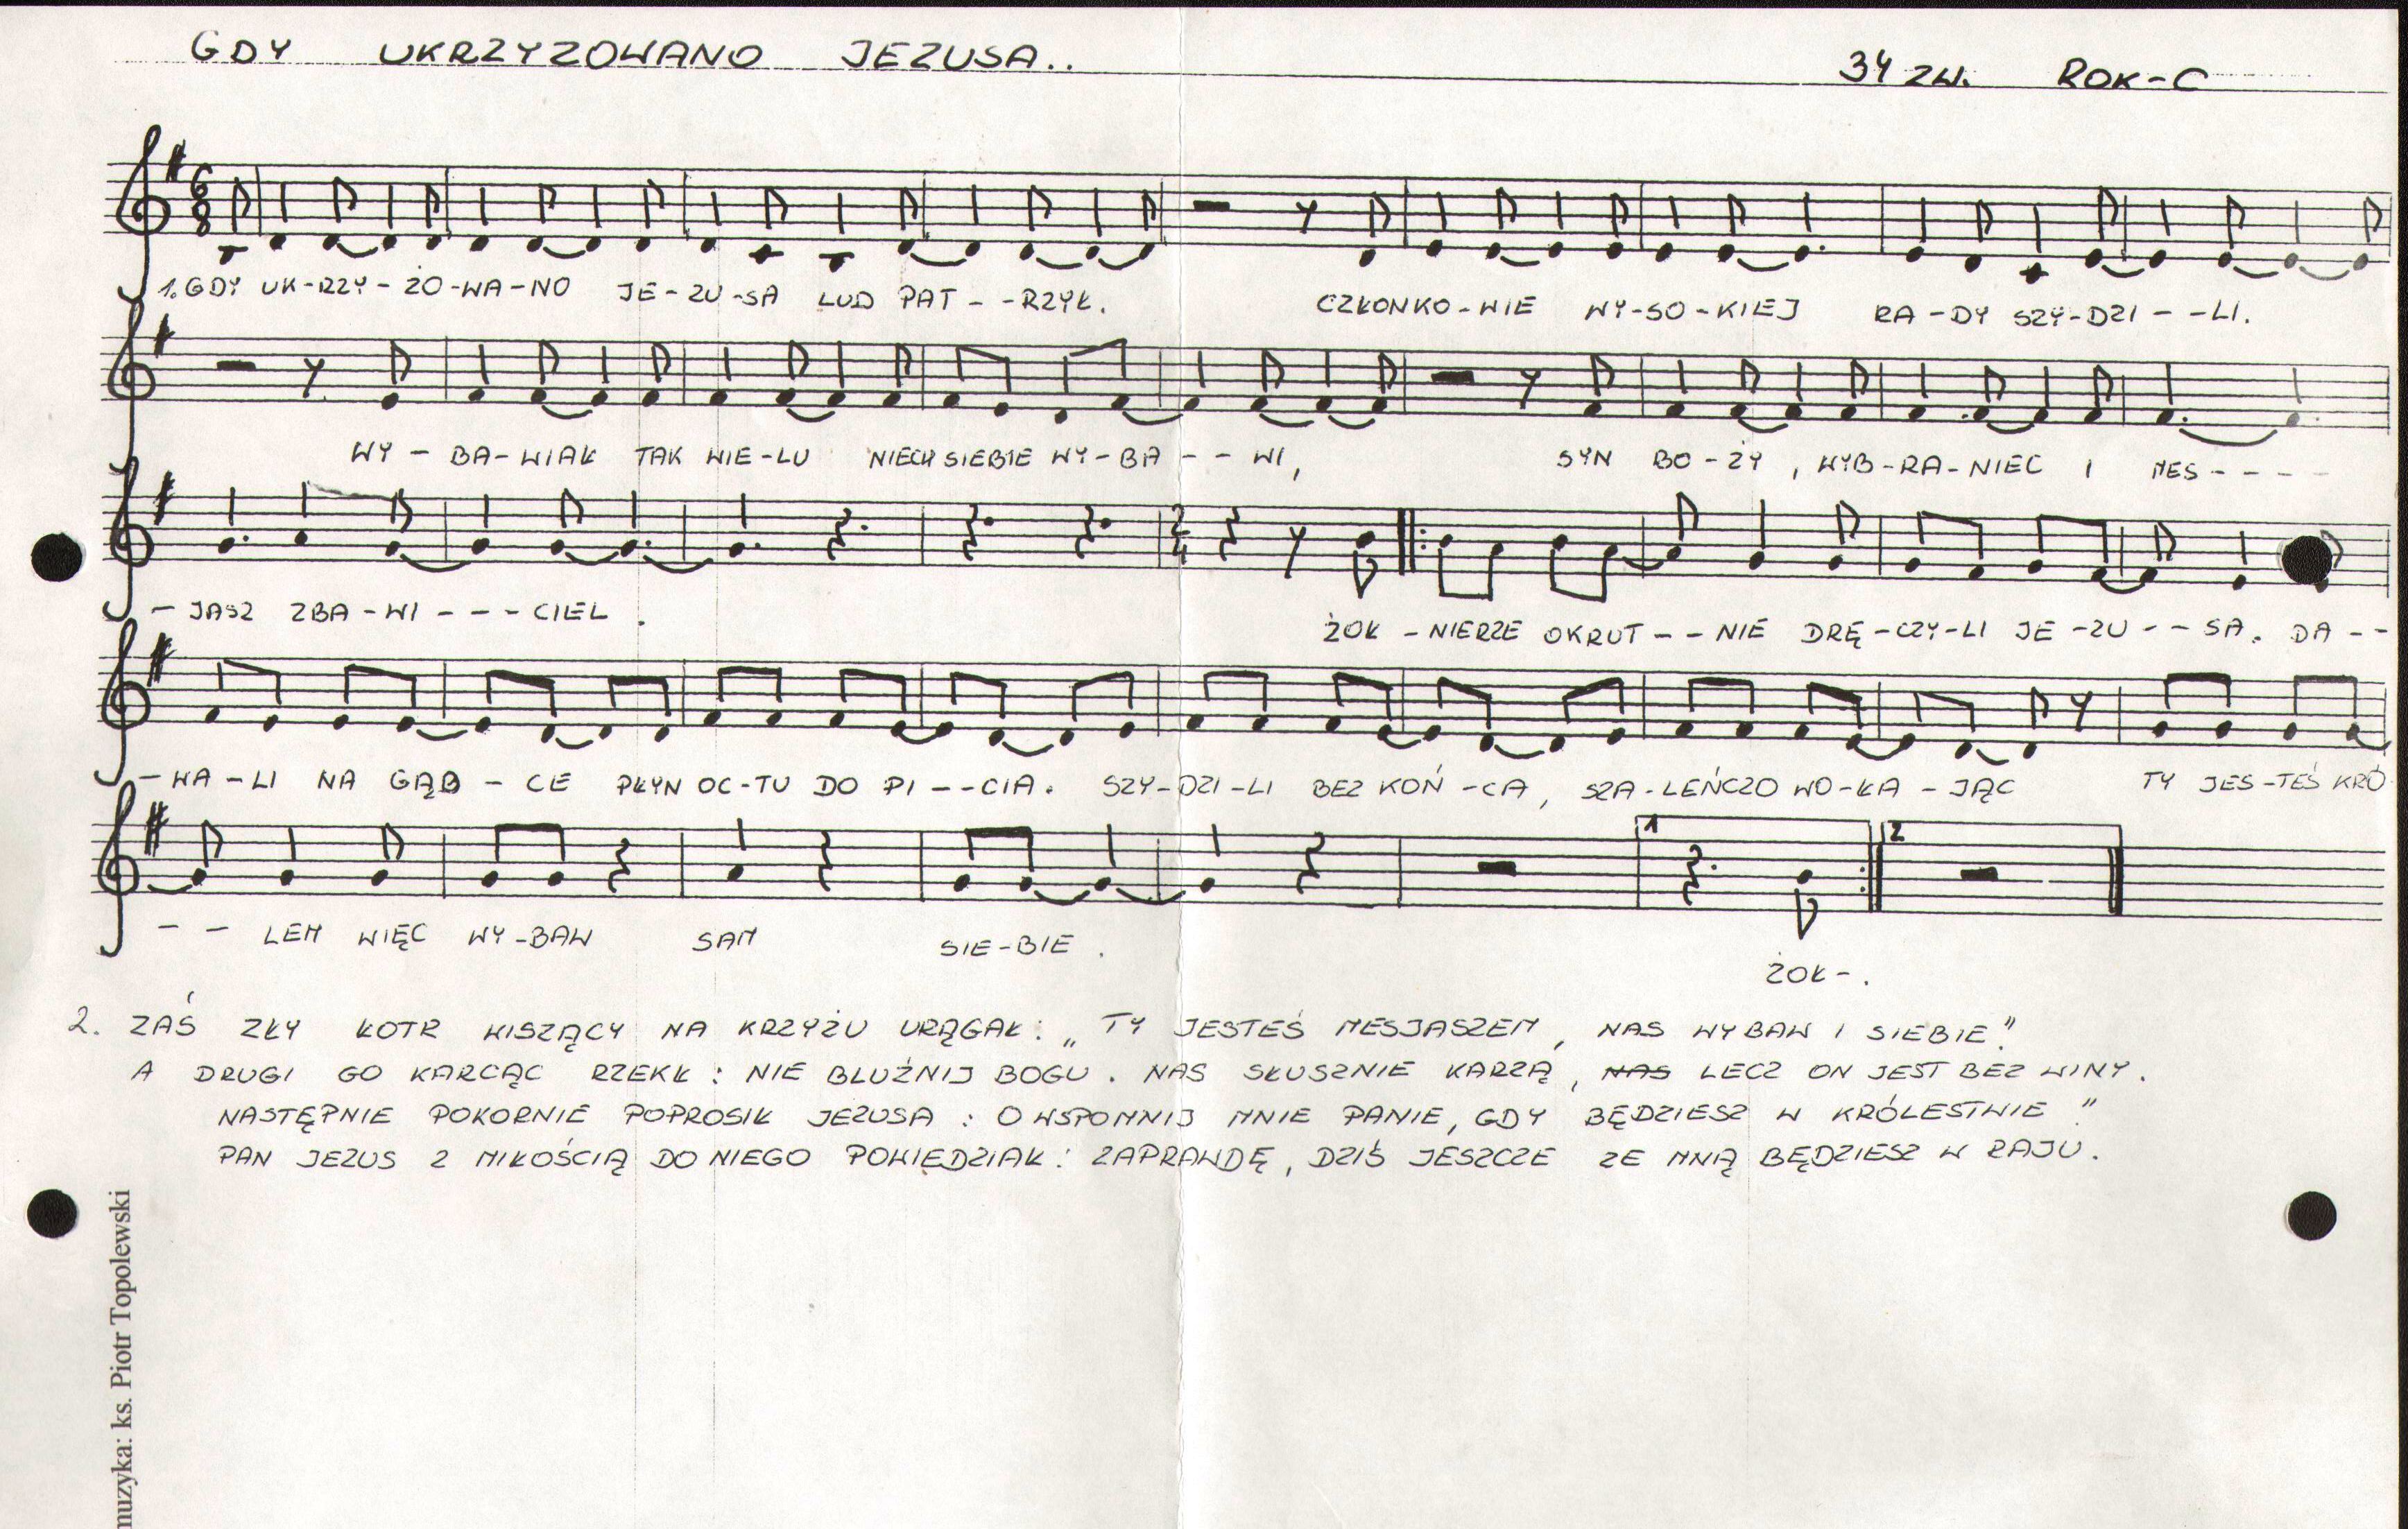 GDY UKRZYZOWANO JEZUSA.. 34 ZW. ROK-C
6 8
1. GDY UK-RZY-ŻO-WA-NO JE-ZU-SA LUD PAT--RZYŁ. CZŁONKO-WIE WY-SO-KIEJ RA-DY SZY-DZI--LI.
WY-BA-WIAŁ TAK WIE-LU NIECH SIEBIE WY-BA--WI, SYN BO-ŻY, WYB-RA-NIEC I MES----
2 4
-JASZ ZBA-WI---CIEL. ŻOŁ-NIERZE OKRUT--NIE DRĘ-CZY-LI JE-ZU--SA. DA--
-WA-LI NA GĄB-CE PŁYN OC-TU DO PI--CIA. SZY-DZI-LI BEZ KOŃ-CA, SZA-LEŃCZO WO-ŁA-JĄC TY JES-TEŚ KRÓ
1 2
-- LEM WIĘC WY-BAW SAM SIE-BIE. ŻOŁ-.
2. ZAŚ ZŁY ŁOTR WISZĄCY NA KRZYŻU URĄGAŁ: „TY JESTEŚ MESJASZEM, NAS WYBAW I SIEBIE."
A DRUGI GO KARCĄC RZEKŁ: NIE BLUŹNIJ BOGU. NAS SŁUSZNIE KARZĄ, NAS LECZ ON JEST BEZ WINY.
NASTĘPNIE POKORNIE POPROSIŁ JEZUSA: O WSPOMNIJ MNIE PANIE, GDY BĘDZIESZ W KRÓLESTWIE"
PAN JEZUS Z MIŁOŚCIĄ DO NIEGO POWIĘDZIAŁ: ZAPRAWDĘ, DZIŚ JESZCZE ZE MNĄ BĘDZIESZ W RAJU.
muzyka: ks. Piotr Topolewski